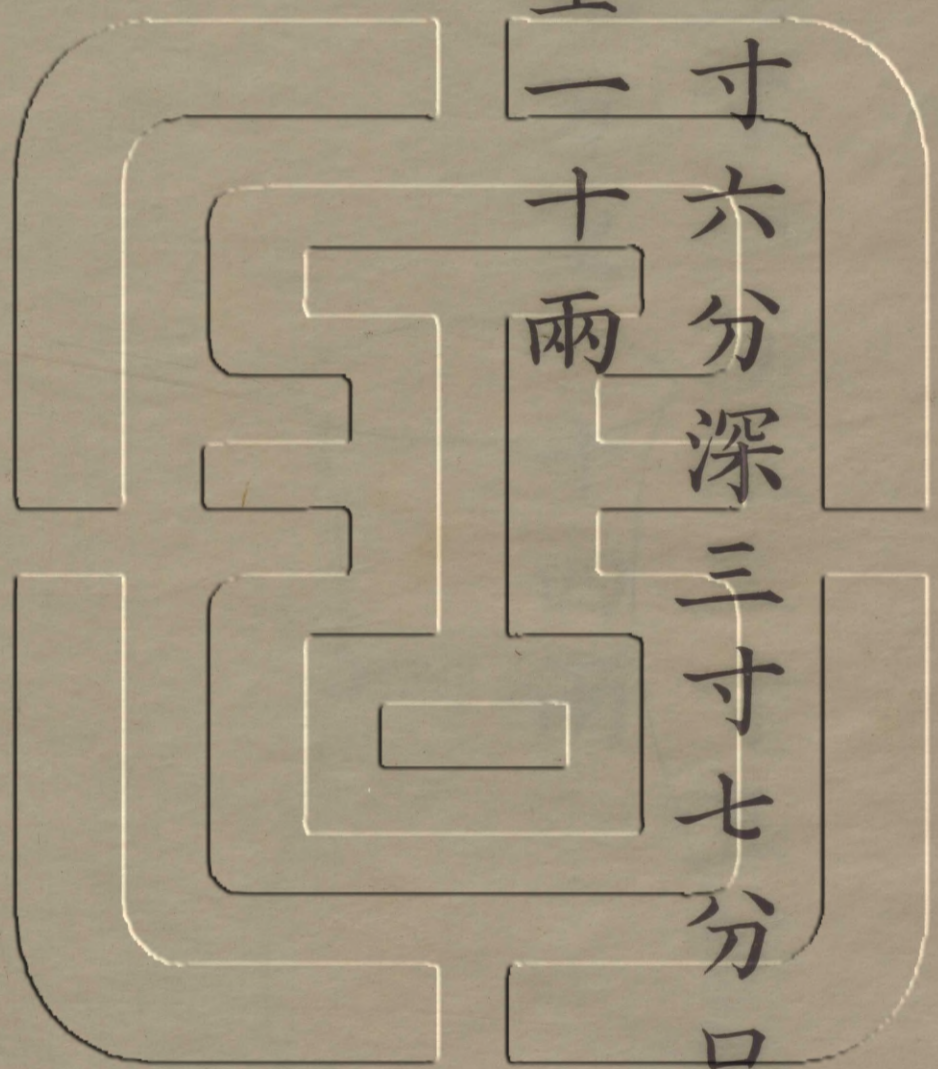 寸六分深三寸七分口
一十兩